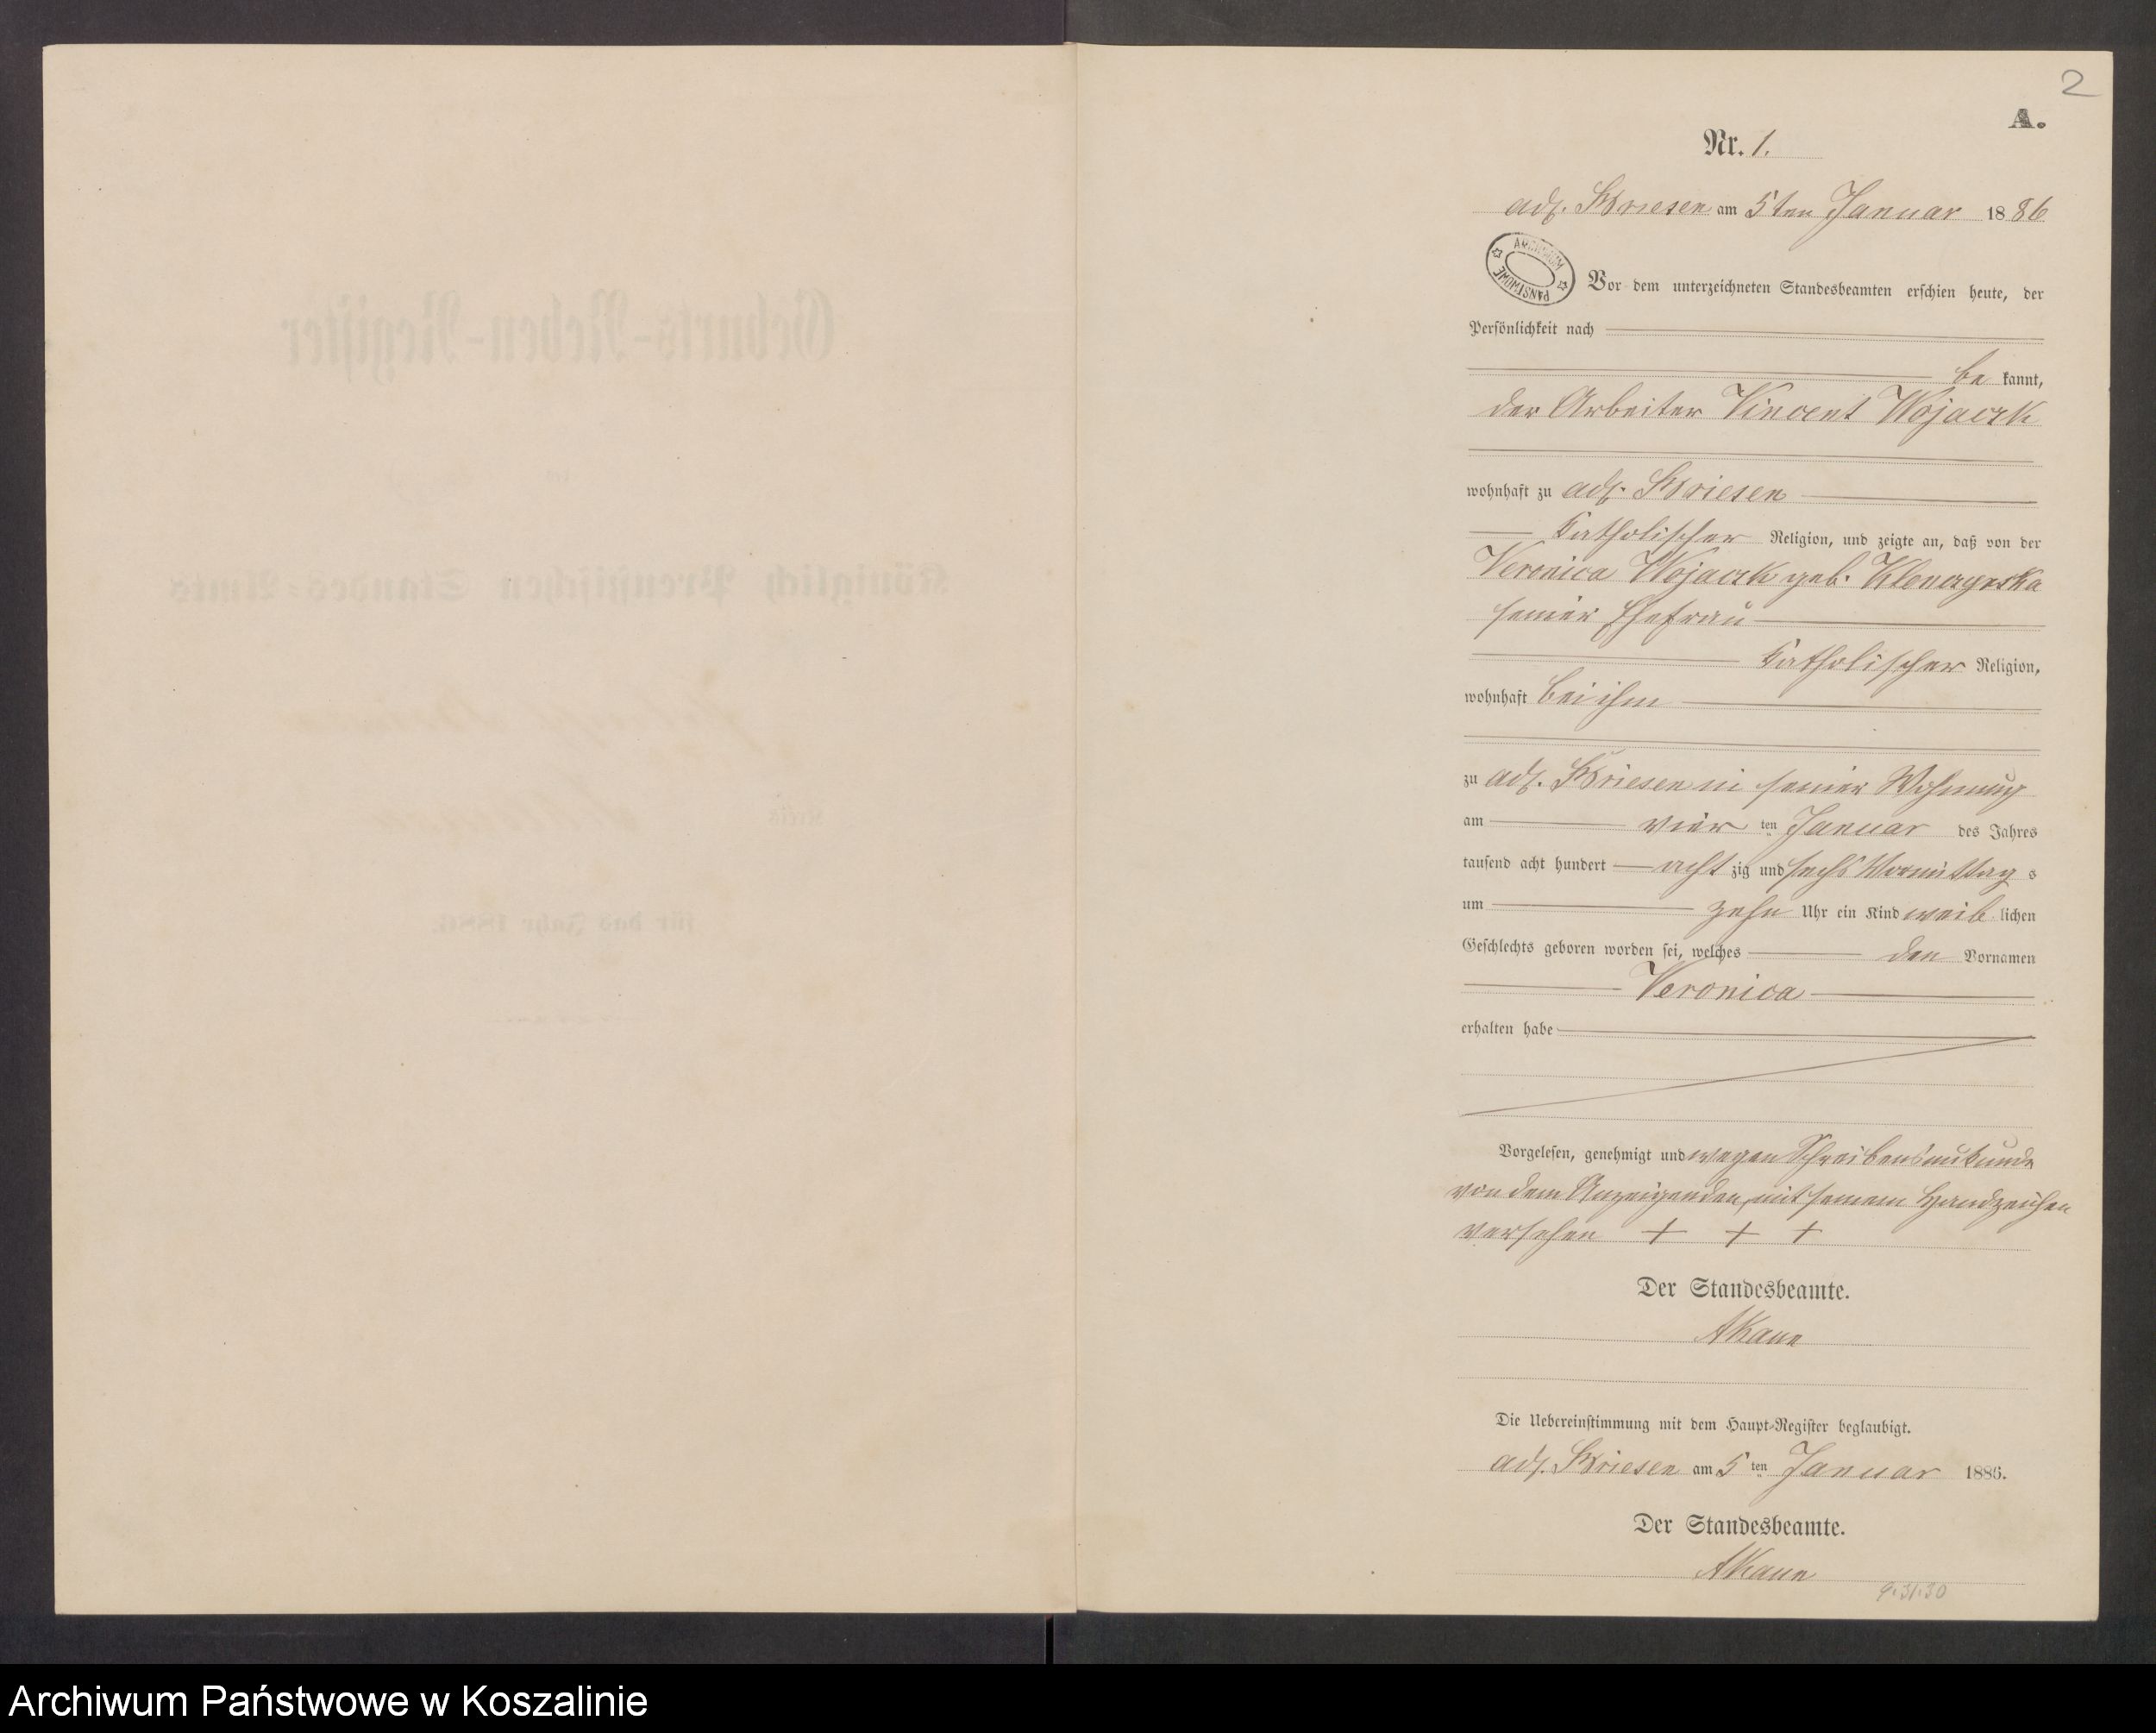 2
A.
Nr. 1.
adl. Briesen am 5ten Januar 1886
ARCHIWUM PAŃSTWOWE
Vor dem unterzeichneten Standesbeamten erschien heute, der
Persönlichkeit nach
be kannt,
der Arbeiter Vincent Wojaczk
wohnhaft zu adl. Briesen
Katholischer Religion, und zeigte an, daß von der
Veronica Wojaczk geb.
seiner Ehefrau
Katholischer Religion,
wohnhaft bei ihm
zu adl. Briesen in seiner Wohnung
am vier ten Januar des Jahres
tausend acht hundert acht zig und sechs Vormittag s
um zehn Uhr ein Kind weib lichen
Geschlechts geboren worden sei, welches den Vornamen
Veronica
erhalten habe
Vorgelesen, genehmigt und wegen Schreibensunkunde
von dem Anzeigenden mit seinem Handzeichen
versehen + + +
Der Standesbeamte.
Die Uebereinstimmung mit dem Haupt-Register beglaubigt.
adl. Briesen am 5 ten Januar 1886.
Der Standesbeamte.
9.31.30
Archiwum Państwowe w Koszalinie